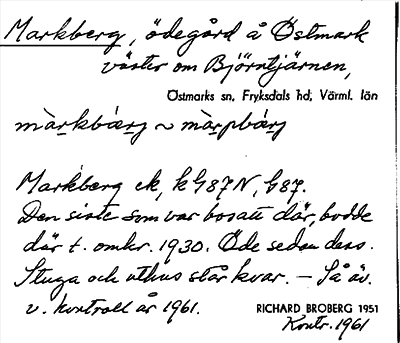 Markberg, ödegård å Östmark
väster om Björntjärnen,
Östmarks sn, Fryksdals hd, Värml. län
màrkbærg ~ màrpbærg
Markberg ek, kG87N, G87.
Den siste som var bosatt där, bodde
där t. omkr. 1930. Öde sedan dess.
Stuga och uthus står kvar. – Så äv.
v. kontroll år 1961.
RICHARD BROBERG 1951
Kontr. 1961